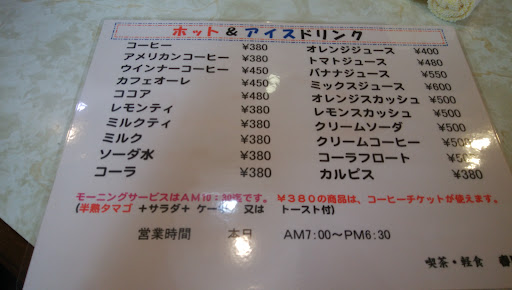 ホット＆アイスドリンク
コーヒー ¥380
アメリカンコーヒー ¥380
ウインナーコーヒー ¥450
カフェオーレ ¥450
ココア ¥480
レモンティ ¥380
ミルクティ ¥380
ミルク ¥380
ソーダ水 ¥380
コーラ ¥380
オレンジジュース ¥400
トマトジュース ¥480
バナナジュース ¥550
ミックスジュース ¥600
オレンジスカッシュ ¥500
レモンスカッシュ ¥500
クリームソーダ ¥500
クリームコーヒー
コーラフロート
カルピス ¥380
モーニングサービスはAM10：30迄です。 ¥380の商品は、コーヒーチケットが使えます。
(半熟タマゴ ＋サラダ＋ ケーキ 又は トースト付)
営業時間 本日 AM7:00～PM6:30
喫茶・軽食